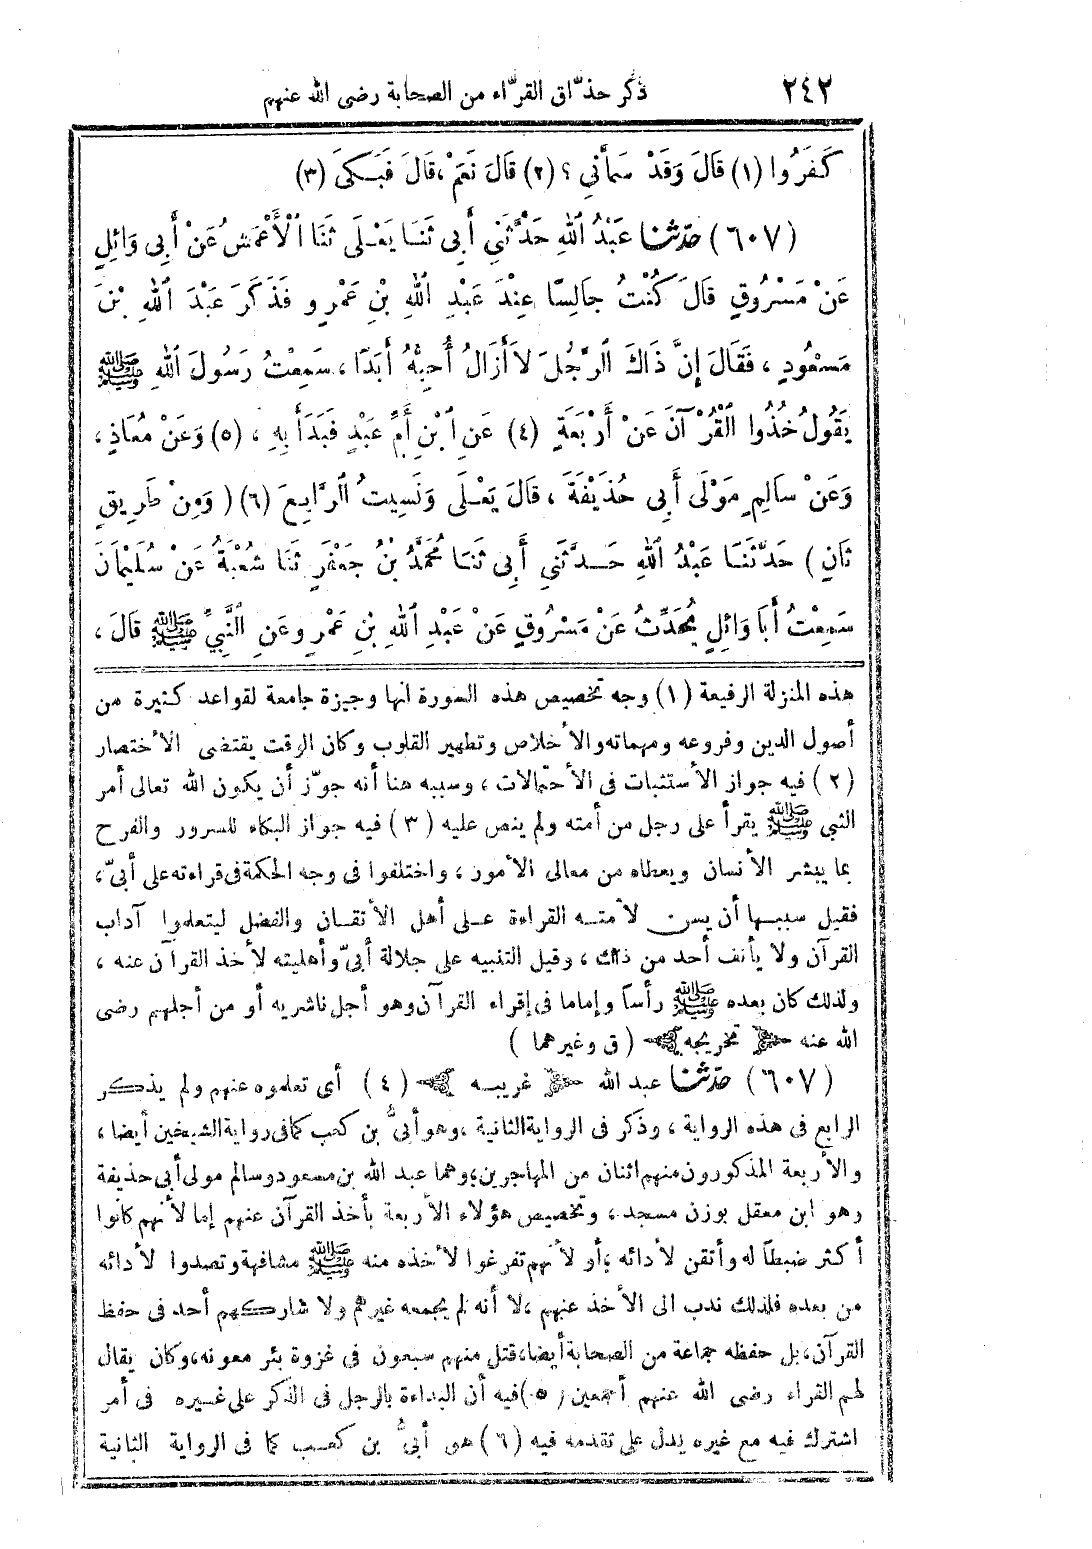 ٢٤٢ ذكر حذّاق القرّاء من الصحابة رضى الله عنهم
كَفَرُوا (١) قَالَ وَقَدْ سَمَّانِي ؟ (٢) قَالَ نَعَمْ، قَالَ فَبَكَى (٣)
(٦٠٧) حدّثنا عَبْدُ اللهِ حَدَّثَنِي أَبِي ثَنَا يَعْلَى ثَنَا الْأَعْمَشُ عَنْ أَبِي وَائِلٍ
عَنْ مَسْرُوقٍ قَالَ كُنْتُ جَالِسًا عِنْدَ عَبْدِ اللهِ بْنِ عَمْرٍو فَذَكَرَ عَبْدَ اللهِ بْنَ
مَسْعُودٍ ، فَقَالَ إِنَّ ذَاكَ الرَّجُلَ لَا أَزَالُ أُحِبُّهُ أَبَدًا ، سَمِعْتُ رَسُولَ اللهِ ﷺ
يَقُولُ خُذُوا الْقُرْآنَ عَنْ أَرْبَعَةٍ (٤) عَنِ ابْنِ أُمِّ عَبْدٍ فَبَدَأَ بِهِ ، (٥) وَعَنْ مُعَاذٍ ،
وَعَنْ سَالِمٍ مَوْلَى أَبِي حُذَيْفَةَ ، قَالَ يَعْلَى وَنَسِيتُ الرَّابِعَ (٦) ( وَمِنْ طَرِيقٍ
ثَانٍ ) حَدَّثَنَا عَبْدُ اللهِ حَدَّثَنِي أَبِي ثَنَا مُحَمَّدُ بْنُ جَعْفَرٍ ثَنَا شُعْبَةُ عَنْ سُلَيْمَانَ
سَمِعْتُ أَبَا وَائِلٍ يُحَدِّثُ عَنْ مَسْرُوقٍ عَنْ عَبْدِ اللهِ بْنِ عَمْرٍو عَنِ النَّبِيِّ ﷺ قَالَ ،
هذه المنزلة الرفيعة (١) وجه تخصيص هذه السورة انها وجيزة جامعة لقواعد كثيرة من
أصول الدين وفروعه ومهماته والأخلاص وتطهير القلوب وكان الوقت يقتضى الأختصار
(٢) فيه جواز الأستثبات فى الأحتمالات ، وسببه هنا أنه جوّز أن يكون الله تعالى أمر
النبي ﷺ يقرأ على رجل من أمته ولم ينص عليه (٣) فيه جواز البكاء للسرور والفرح
بما يبشر الأنسان ويعطاه من معالى الأمور ، واختلفوا فى وجه الحكمة فى قراءته على أبيّ ،
فقيل سببها أن يسن لأمته القراءة على أهل الأتقان والفضل ليتعلموا آداب
القرآن ولا يأنف أحد من ذلك ، وقيل التنبيه على جلالة أبيّ وأهليته لأخذ القرآن عنه ،
ولذلك كان بعده ﷺ رأسا وإماما فى إقراء القرآن وهو أجل ناشريه أو من أجلهم رضى
الله عنه ﴿ تخريجه ﴾ ( ق وغيرهما )
(٦٠٧) حدّثنا عبد الله ﴿ غريبه ﴾ (٤) أى تعلموه عنهم ولم يذكر
الرابع فى هذه الرواية ، وذكر فى الرواية الثانية ، وهو أبيُّ بن كعب كما فى رواية الشيخين أيضا ،
والأربعة المذكورون منهم اثنان من المهاجرين ؛ وهما عبد الله بن مسعود وسالم مولى أبى حذيفة
وهو ابن معقل بوزن مسجد ، وتخصيص هؤلاء الأربعة بأخذ القرآن عنهم إما لأنهم كانوا
أكثر ضبطاً له وأتقن لأدائه ؛ أو لأنهم تفرغوا لأخذه منه ﷺ مشافهة وتصدوا لأدائه
من بعده فلذلك ندب الى الأخذ عنهم ، لا أنه لم يجمعه غيرهم ولا شاركهم أحد فى حفظ
القرآن ، بل حفظه جماعة من الصحابة أيضا ، قتل منهم سبعون فى غزوة بئر معونه ، وكان يقال
لهم القراء رضى الله عنهم أجمعين (٥) فيه أن البداءة بالرجل فى الذكر على غيره فى أمر
اشترك فيه مع غيره يدل على تقدمه فيه (٦) هو أبيُّ بن كعب كما فى الرواية الثانية